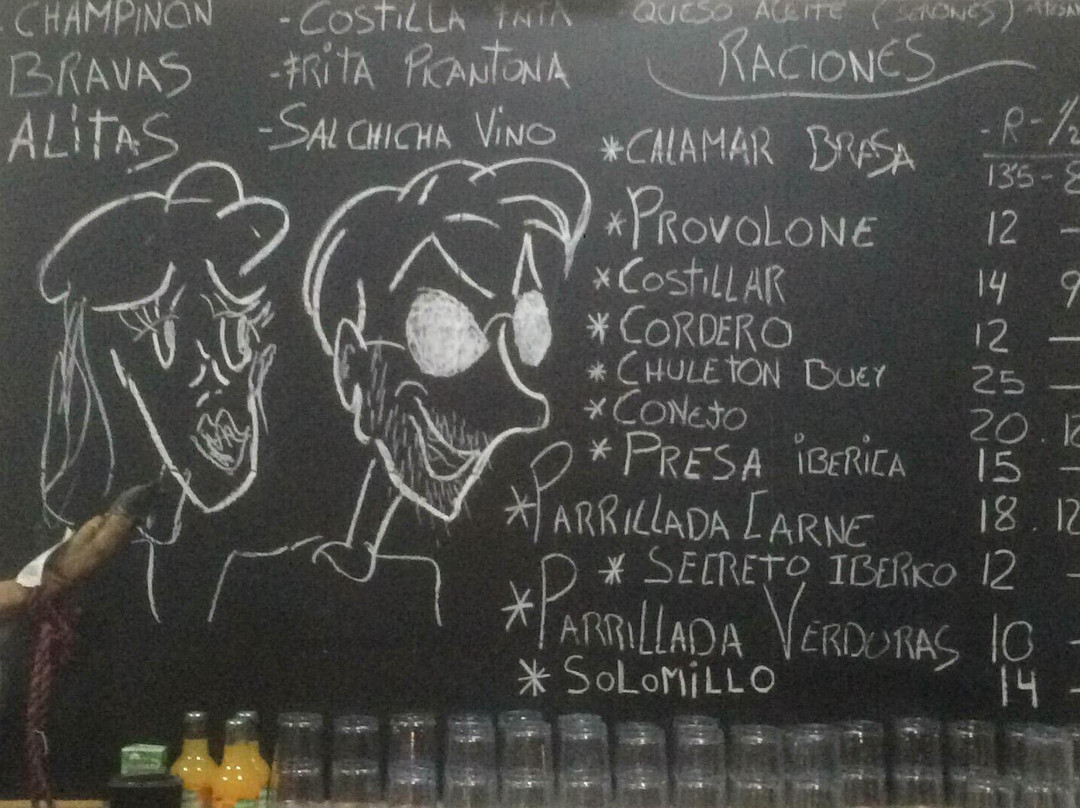 CHAMPIÑON
BRAVAS
ALITAS
- COSTILLA
- FRITA PICANTONA
- SALCHICHA VINO
QUESO ACEITE (SERONES)
RACIONES
- R - 1/2
* CALAMAR BRASA 13'5 - 8
* PROVOLONE 12 -
* COSTILLAR 14 9
* CORDERO 12 -
* CHULETON BUEY 25 -
* CONEJO 20 . 12
* PRESA IBERICA 15 -
* PARRILLADA CARNE 18 . 12
* SECRETO IBERICO 12 -
* PARRILLADA VERDURAS 10 -
* SOLOMILLO 14 -